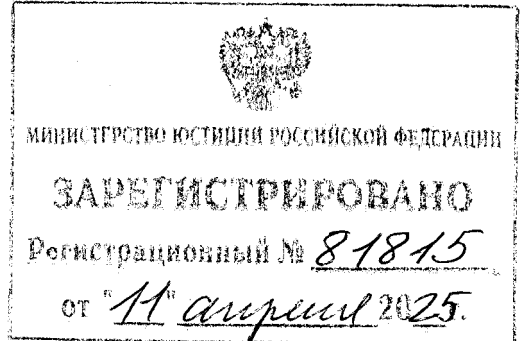 МИНИСТЕРСТВО ЮСТИЦИИ РОССИЙСКОЙ ФЕДЕРАЦИИ
ЗАРЕГИСТРИРОВАНО
Регистрационный № 81815
от "11" апреля 2025.